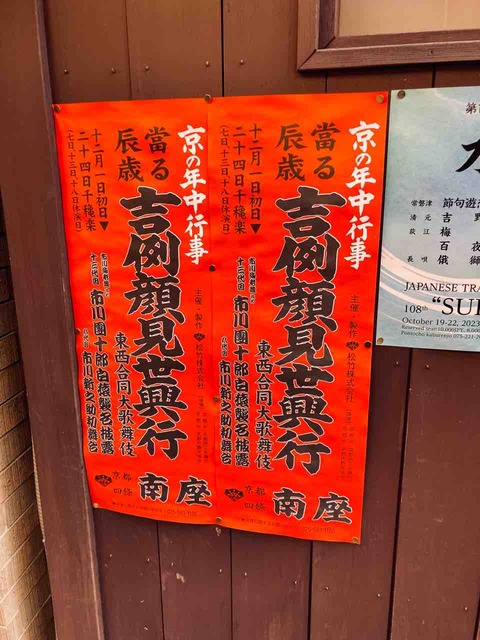 京の年中行事
當る
辰歳
吉例顔見世興行
東西合同大歌舞伎
十二月一日初日▼
二十四日千穐楽
(七日、十三日、十八日休演日)
主催・製作
松竹株式会社
十三代目
市川團十郎白猿襲名披露
八代目
市川新之助初舞台
京都
四條
南座
京の年中行事
當る
辰歳
吉例顔見世興行
東西合同大歌舞伎
十二月一日初日▼
二十四日千穐楽
(七日、十三日、十八日休演日)
主催・製作
松竹株式会社
十三代目
市川團十郎白猿襲名披露
八代目
市川新之助初舞台
京都
四條
南座
第
常磐津 節句遊
清元 吉野
荻江 梅
百夜
長唄 俄獅
JAPANESE TRA
108th "SU
October 19-22, 2023